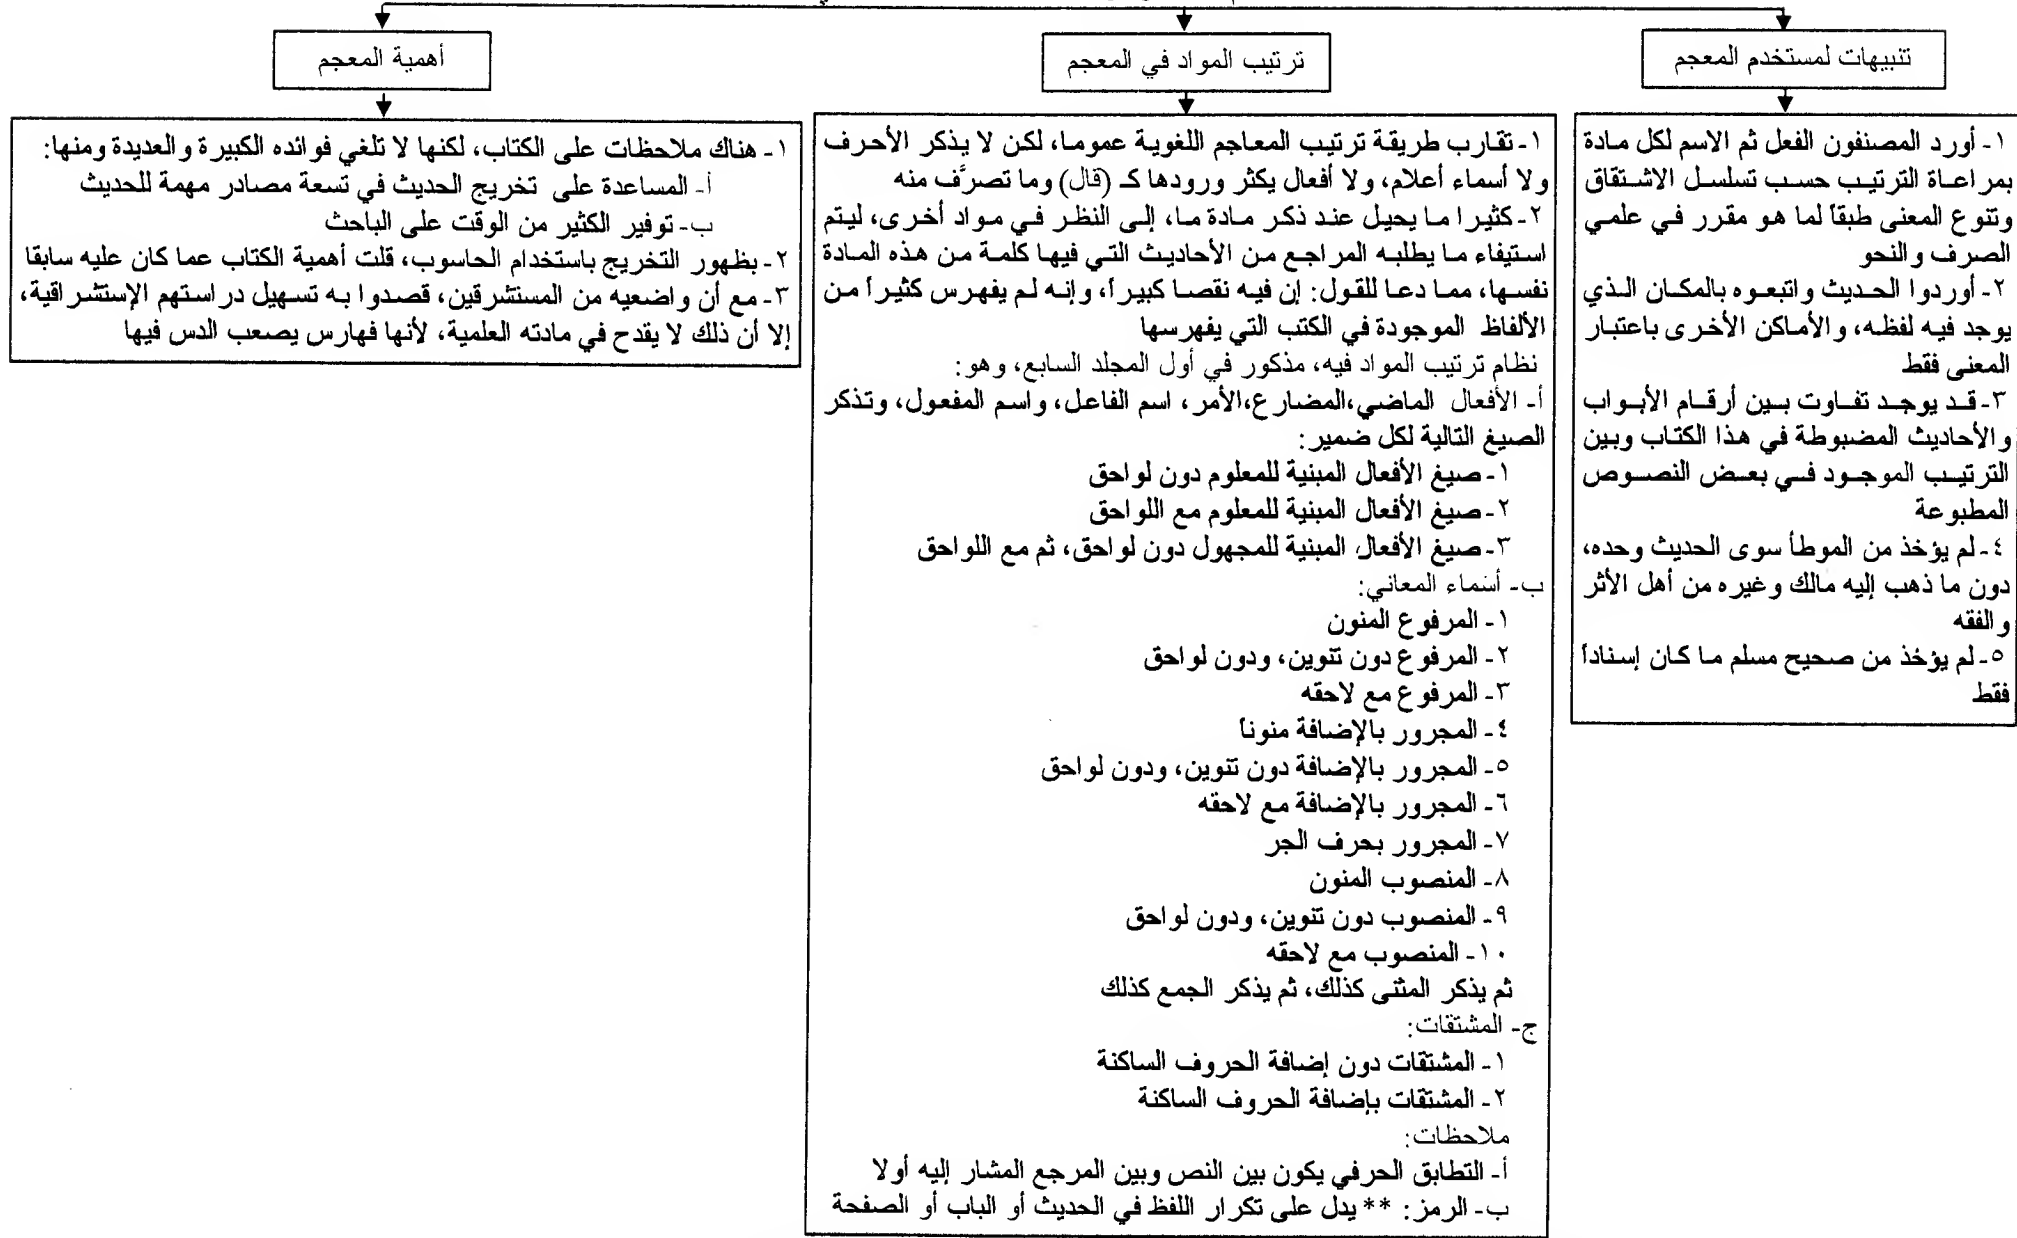 تنبيهات لمستخدم المعجم
١- أورد المصنفون الفعل ثم الاسم لكل مادة
بمراعاة الترتيب حسب تسلسل الاشتقاق
وتنوع المعنى طبقاً لما هو مقرر في علمي
الصرف والنحو
٢- أوردوا الحديث واتبعوه بالمكان الذي
يوجد فيه لفظه، والأماكن الأخرى باعتبار
المعنى فقط
٣- قد يوجد تفاوت بين أرقام الأبواب
والأحاديث المضبوطة في هذا الكتاب وبين
الترتيب الموجود في بعض النصوص
المطبوعة
٤- لم يؤخذ من الموطأ سوى الحديث وحده،
دون ما ذهب إليه مالك وغيره من أهل الأثر
والفقه
٥- لم يؤخذ من صحيح مسلم ما كان إسناداً
فقط
ترتيب المواد في المعجم
١- تقارب طريقة ترتيب المعاجم اللغوية عموما، لكن لا يذكر الأحرف
ولا أسماء أعلام، ولا أفعال يكثر ورودها كـ (قال) وما تصرَّف منه
٢- كثيرا ما يحيل عند ذكر مادة ما، إلى النظر في مواد أخرى، ليتم
استيفاء ما يطلبه المراجع من الأحاديث التي فيها كلمة من هذه المادة
نفسها، مما دعا للقول: إن فيه نقصا كبيراً، وإنه لم يفهرس كثيراً من
الألفاظ الموجودة في الكتب التي يفهرسها
نظام ترتيب المواد فيه، مذكور في أول المجلد السابع، وهو:
أ- الأفعال الماضي،المضارع،الأمر، اسم الفاعل، واسم المفعول، وتذكر
الصيغ التالية لكل ضمير:
١- صيغ الأفعال المبنية للمعلوم دون لواحق
٢- صيغ الأفعال المبنية للمعلوم مع اللواحق
٣- صيغ الأفعال المبنية للمجهول دون لواحق، ثم مع اللواحق
ب- أسماء المعاني:
١- المرفوع المنون
٢- المرفوع دون تنوين، ودون لواحق
٣- المرفوع مع لاحقه
٤- المجرور بالإضافة منونا
٥- المجرور بالإضافة دون تنوين، ودون لواحق
٦- المجرور بالإضافة مع لاحقه
٧- المجرور بحرف الجر
٨- المنصوب المنون
٩- المنصوب دون تنوين، ودون لواحق
١٠- المنصوب مع لاحقه
ثم يذكر المثنى كذلك، ثم يذكر الجمع كذلك
ج- المشتقات:
١- المشتقات دون إضافة الحروف الساكنة
٢- المشتقات بإضافة الحروف الساكنة
ملاحظات:
أ- التطابق الحرفي يكون بين النص وبين المرجع المشار إليه أولا
ب- الرمز: ** يدل على تكرار اللفظ في الحديث أو الباب أو الصفحة
أهمية المعجم
١- هناك ملاحظات على الكتاب، لكنها لا تلغي فوائده الكبيرة والعديدة ومنها:
أ- المساعدة على تخريج الحديث في تسعة مصادر مهمة للحديث
ب- توفير الكثير من الوقت على الباحث
٢- بظهور التخريج باستخدام الحاسوب، قلت أهمية الكتاب عما كان عليه سابقا
٣- مع أن واضعيه من المستشرقين، قصدوا به تسهيل دراستهم الإستشراقية،
إلا أن ذلك لا يقدح في مادته العلمية، لأنها فهارس يصعب الدس فيها